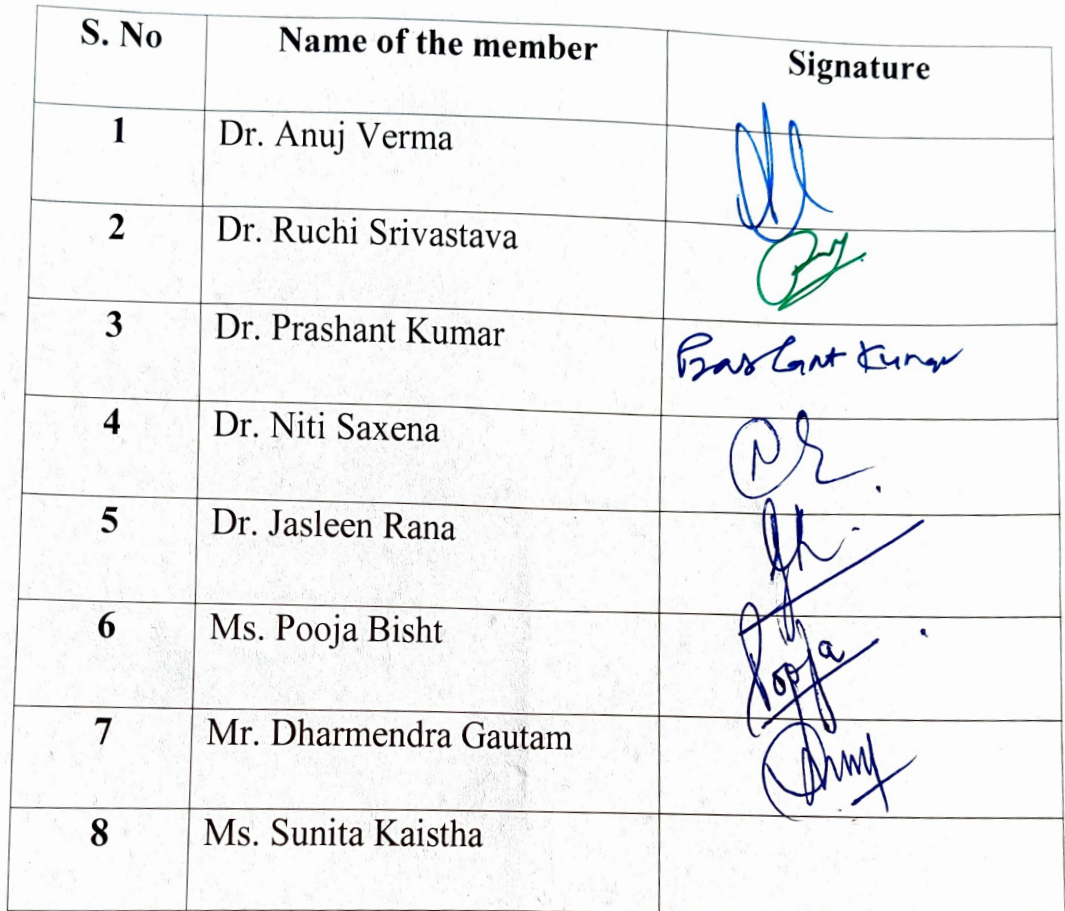 S. No Name of the member Signature
1 Dr. Anuj Verma
2 Dr. Ruchi Srivastava
3 Dr. Prashant Kumar Prashant Kumar
4 Dr. Niti Saxena
5 Dr. Jasleen Rana
6 Ms. Pooja Bisht Pooja
7 Mr. Dharmendra Gautam
8 Ms. Sunita Kaistha